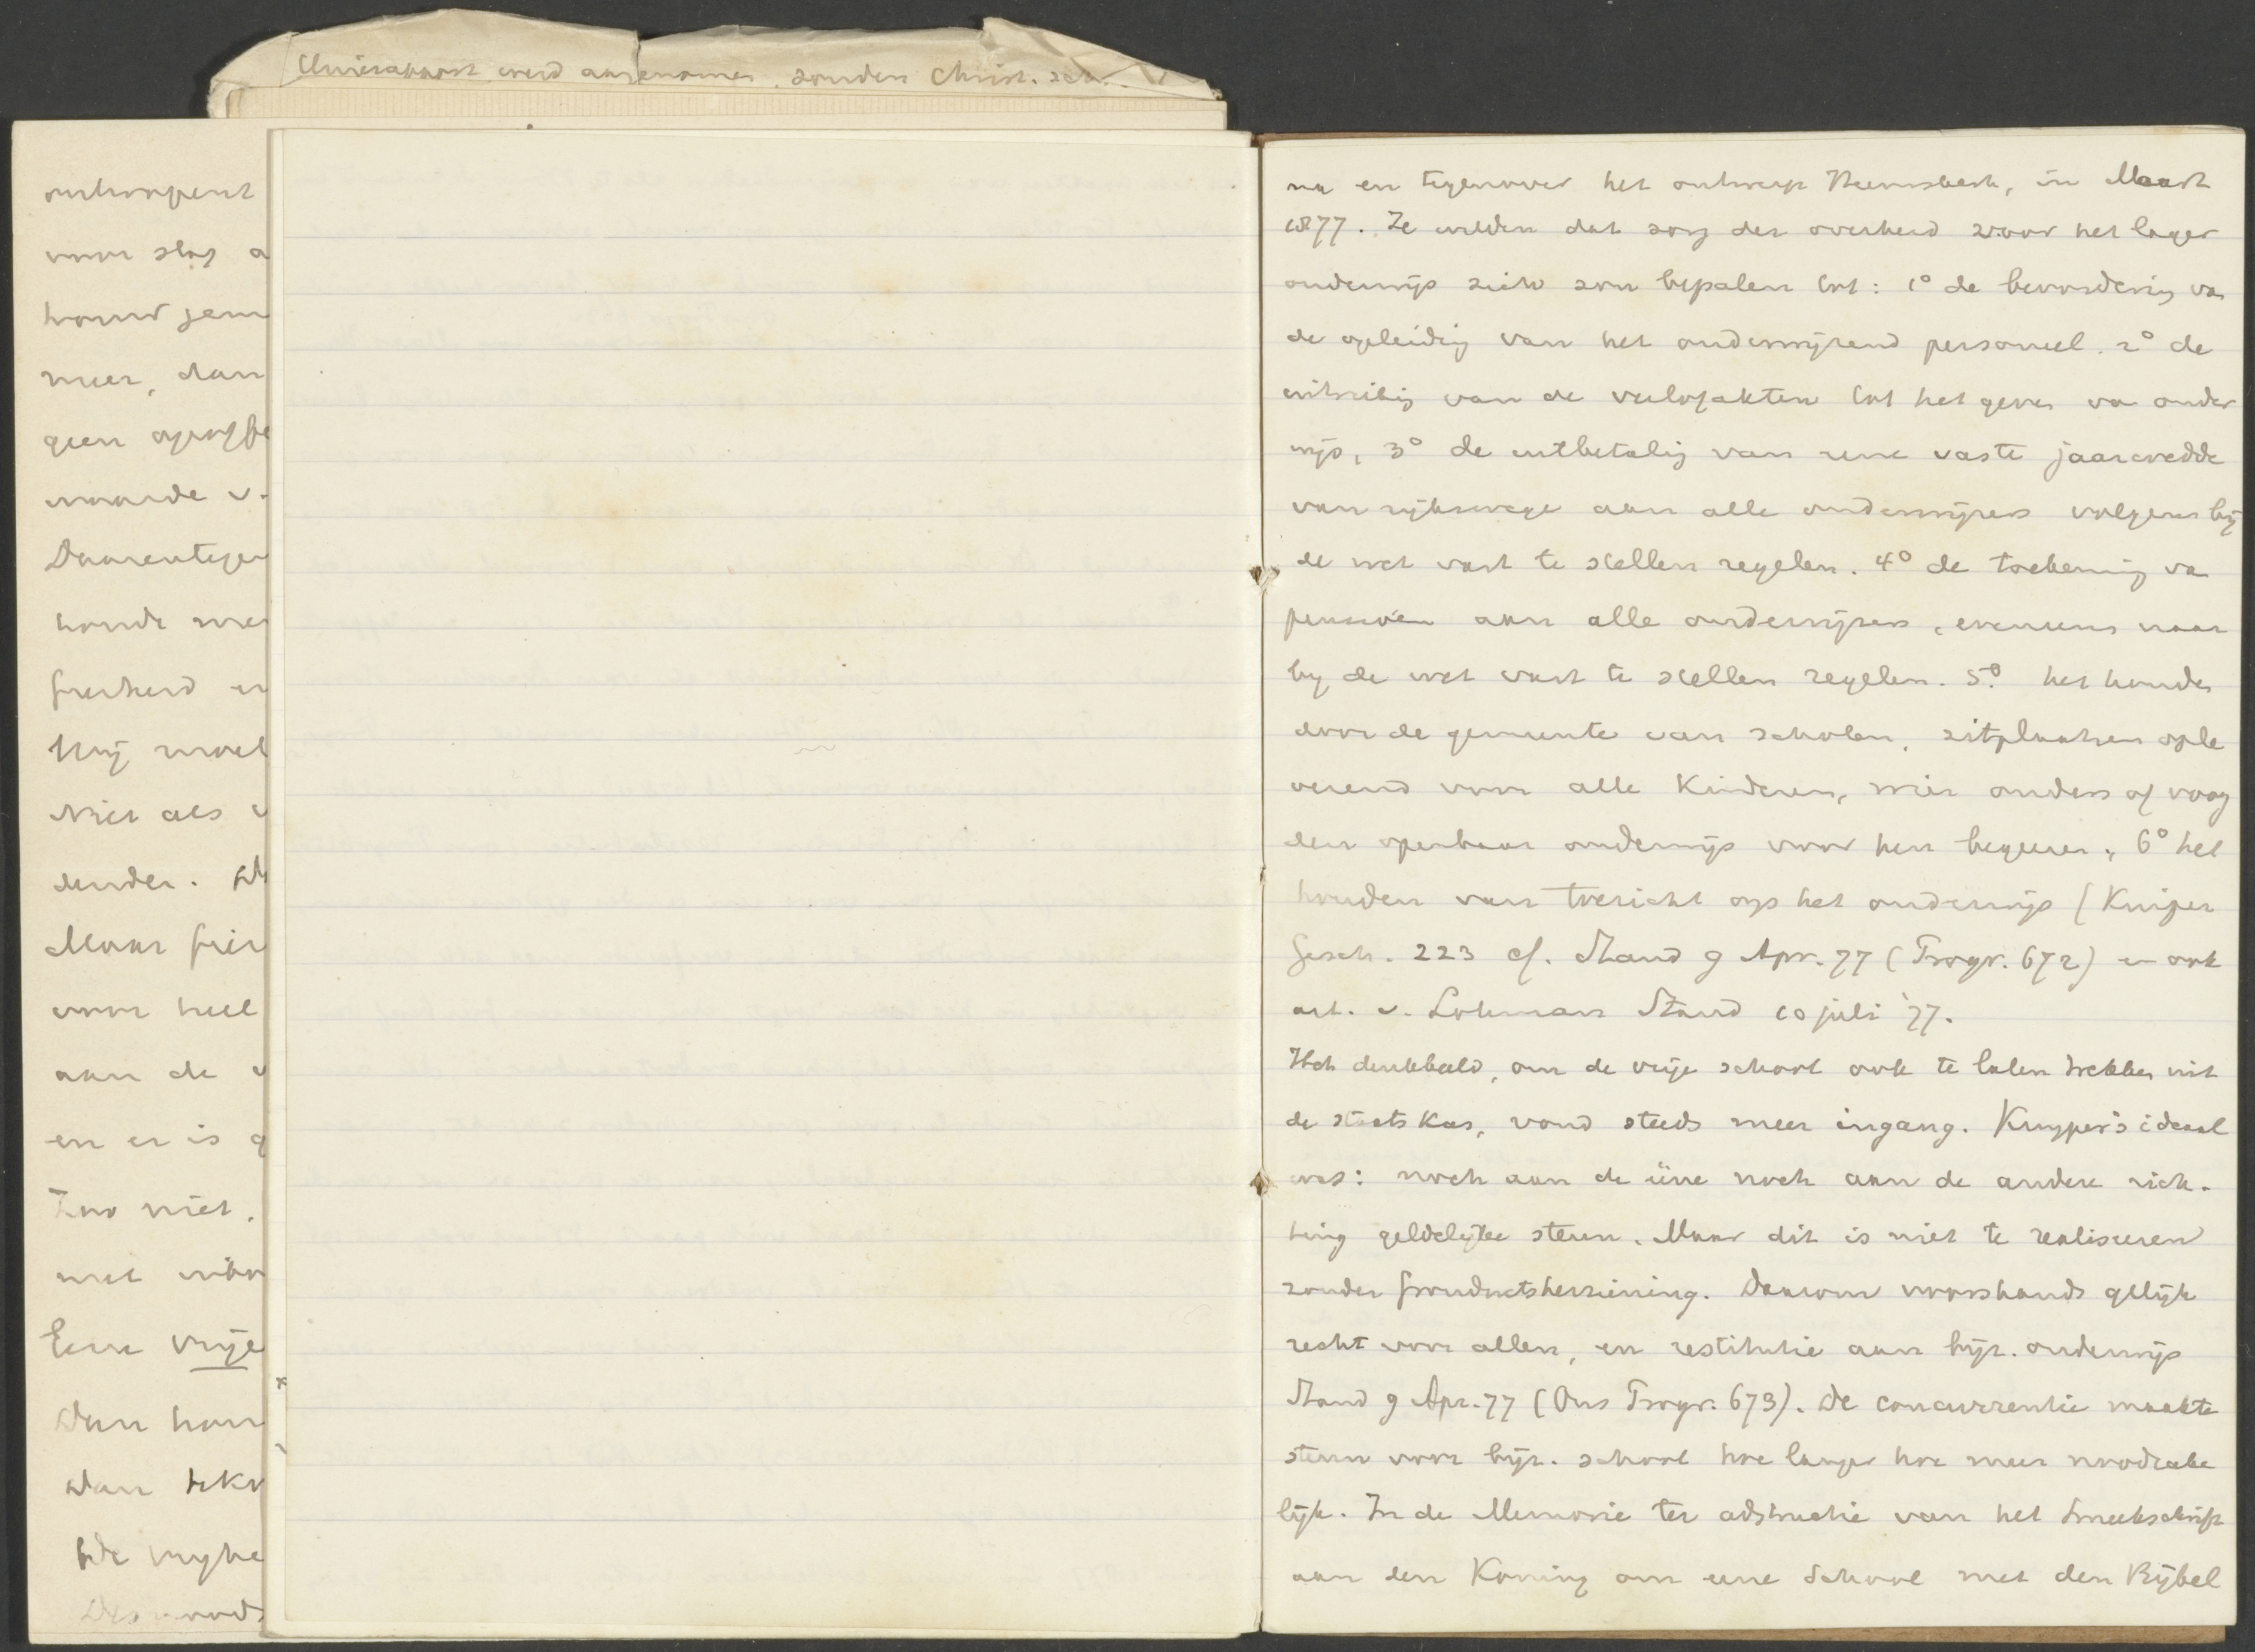 Unierapport werd aangenomen. zonder Christ. sch.
ontwapent
voor slag a
houd jem
meer, dan
geen
waarde v.
Daarentegen
houde me
heid en
Mij moet
Niet als v
ander.
Maar
voor heel
aan de v
en er is g
Zoo niet.
met
Eene vrije
Dan hou
Dan
De vryhe
Des noods
na en tegenover het ontwerp Heemskerk, in Maart
1877. Ze wilden dat zorg der overheid voor het lager
onderwijs zich zou bepalen tot: 1° de bevordering van
de opleiding van het onderwijzend personeel. 2° de
uitreiking van de verlofakten tot het geven van onder
wijs, 3° de uitbetaling van eene vaste jaarwedde
van rijkswege aan alle onderwijzers volgens bij
de wet vast te stellen regelen. 4° de toekenning van
pensioen aan alle onderwijzers, eveneens naar
bij de wet vast te stellen regelen. 5° het houden
door de gemeente van scholen, zitplaatsen ople
verend voor alle kinderen, wier ouders of voog
den openbaar onderwijs voor hen begeeren, 6° het
houden van toezicht op het onderwijs (Kuiper
Gesch. 223 cf. Stand 9 Apr. 77 (Progr. 672) en ook
art. v. Lohman Stand 10 juli '77.
Het denkbeeld, om de vrije school ook te laten trekken uit
de staatskas, vond steeds meer ingang. Kuyper's ideaal
was: noch aan de eene noch aan de andere rich-
ting geldelijke steun. Maar dit is niet te realiseeren
zonder grondwetsherziening. Daarom voorshands gelijk
recht voor allen, en restitutie aan bijz. onderwijs
Stand 9 Apr. 77 (Ons Progr. 673). De concurrentie maakte
steun voor bijz. school hoe langer hoe meer noodzake
lijk. In de Memorie ter adstructie van het Smeekschrift
aan den Koning om eene School met den Bijbel